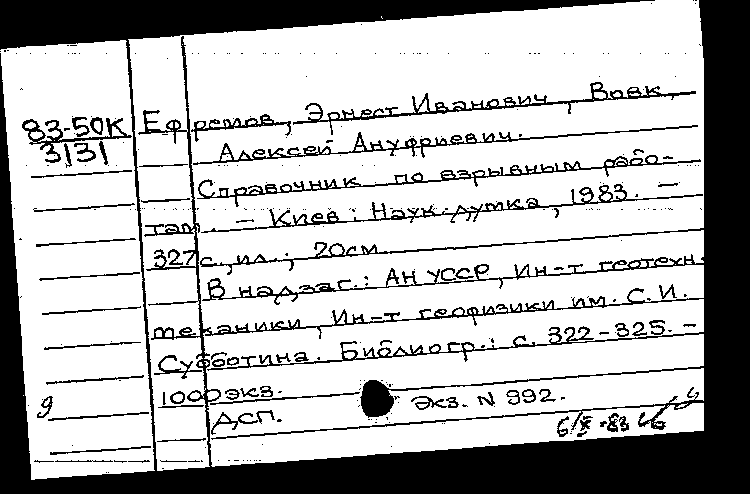 83-50К Ефремов, Эрнест Иванович, Вовк,
3131 Алексей Ануфриевич.
Справочник по взрывным рабо-
там. – Киев: Наук. думка, 1983. –
327 с., ил.; 20см
В надзаг.: АН УССР, Ин-т геотехн.
механики, Ин-т геофизики им. С.И.
Субботина. Библиогр.: с. 322-325. –
1000 экз.
ДСП. Экз. N 992.